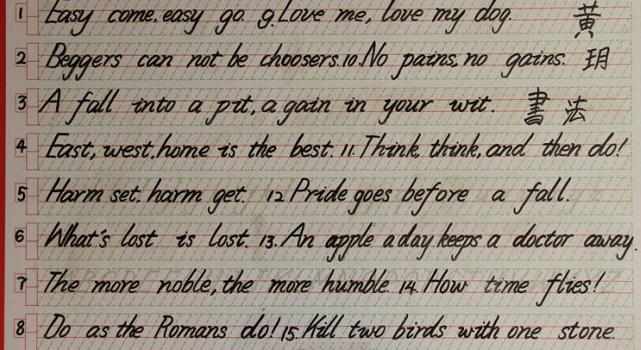 1 Easy come. easy go. 9. Love me, love my dog. 黄
2 Beggers can not be choosers. 10. No pains, no gains. 玥
3 A fall into a pit, a gain in your wit. 書法
4 East, west. home is the best. 11. Think, think, and then do!
5 Harm set. harm get. 12 Pride goes before a fall.
6 What's lost is lost. 13. An apple a day keeps a doctor away.
7 The more noble, the more humble. 14. How time flies!
8 Do as the Romans do! 15. Kill two birds with one stone.